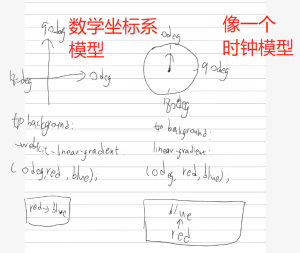 90deg
数学坐标系
模型
180deg
0deg
像一个
时钟模型
0deg
90deg
180deg
background:
-webkit-linear-gradient
(0deg,red,blue),
background:
linear-gradient:
(0deg,red,blue),
red→blue
blue
↑
red